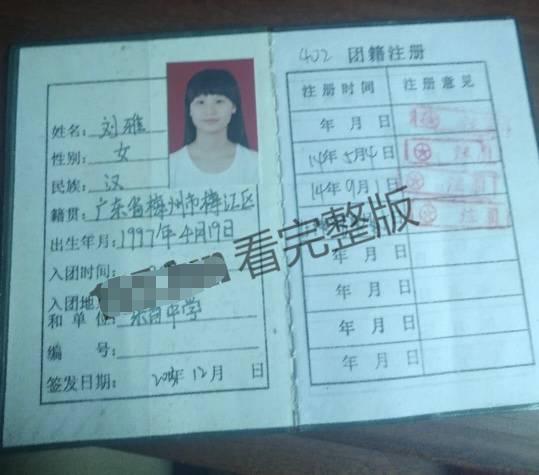 姓名：刘雅
性别：女
民族：汉
籍贯：广东省梅州市梅江区
出生年月：1997年4月19日
入团时间：
入团地
和单位：乐育中学
编 号：
签发日期： 年12月 日
402 团籍注册
注册时间 注册意见
年 月 日
14年5月4日
14年9月1日
年 月 日
年 月 日
年 月 日
年 月 日
看完整版